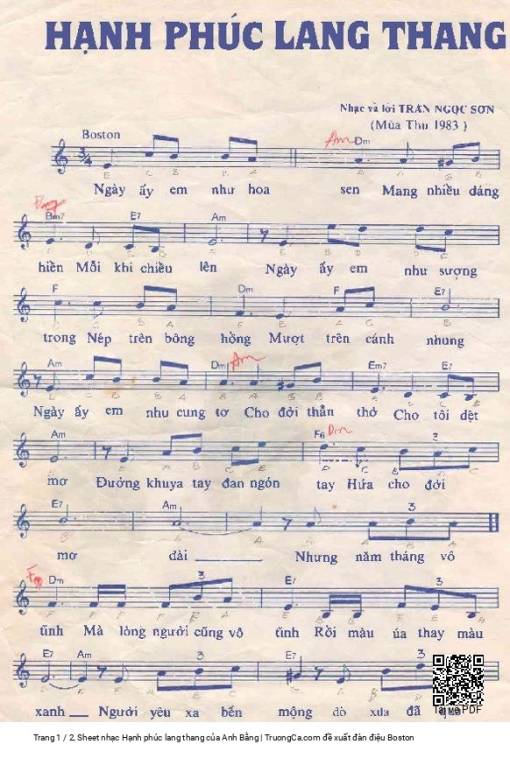 HẠNH PHÚC LANG THANG
Nhạc và lời TRẦN NGỌC SƠN
(Mùa Thu 1983 )
Boston
Am Dm
Ngày ấy em như hoa sen Mang nhiều dáng
Bm7 E7 Am
hiền Mỗi khi chiều lên Ngày ấy em như sương
F Dm E7
trong Nép trên bông hồng Mượt trên cánh nhung
Am Dm Am Em7 E7
Ngày ấy em như cung tơ Cho đời thẫn thờ Cho tôi dệt
Am F6 Dm
mơ Đường khuya tay đan ngón tay Hứa cho đời
E7 Am 3
mơ dài Nhưng năm tháng vô
Dm 3 E7
tình Mà lòng người cũng vô tình Rồi màu úa thay màu
E7 Am 3 E7 3
xanh Người yêu xa bến mộng đò xưa đã
Tải về PDF
Trang 1 / 2. Sheet nhạc Hạnh phúc lang thang của Anh Bằng | TruongCa.com đề xuất đàn điệu Boston